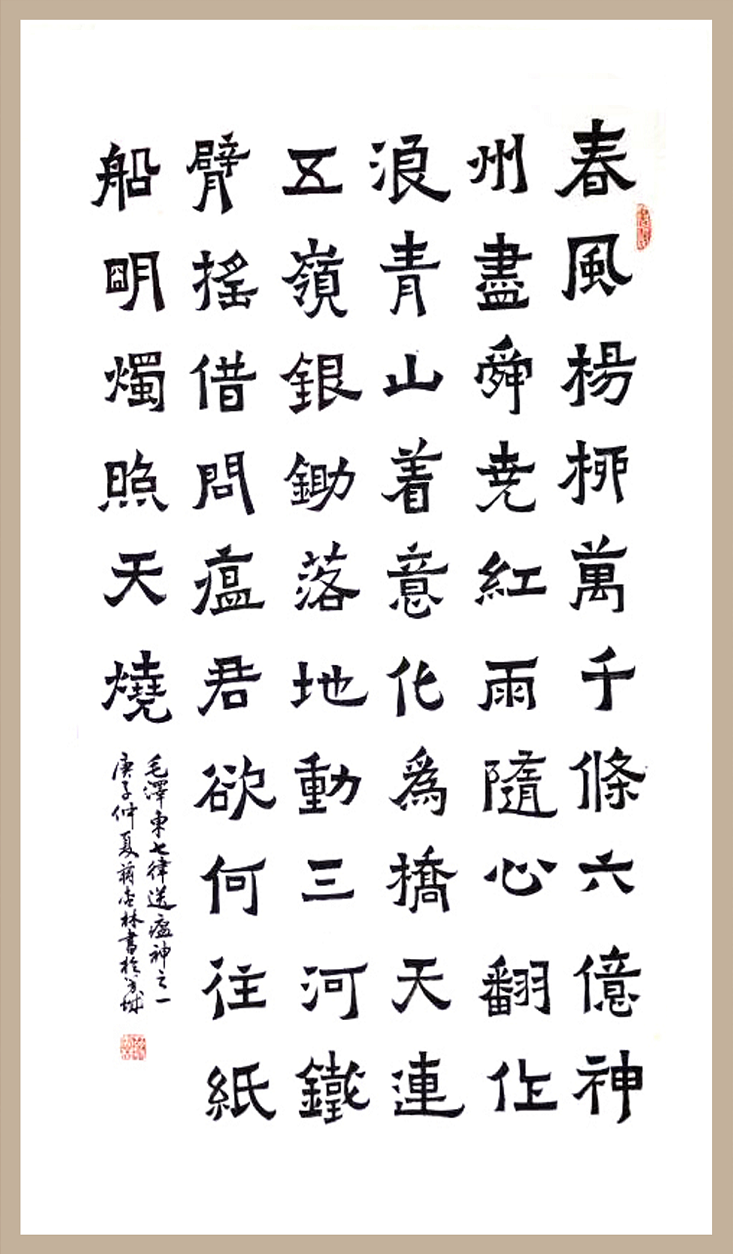 春風楊柳萬千條六億神
州盡舜尭紅雨隨心翻作
浪青山着意化為橋天連
五嶺銀鋤落地動三河鐵
臂搖借問瘟君欲何往紙
船明燭照天燒
毛澤東七律送瘟神之一
庚子仲夏蔣金林書於